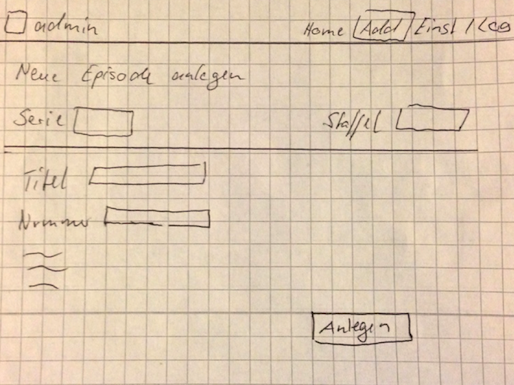 admin Home Add Einst
Neue Episode anlegen
Serie Staffel
Titel
Nummer
Anlegen